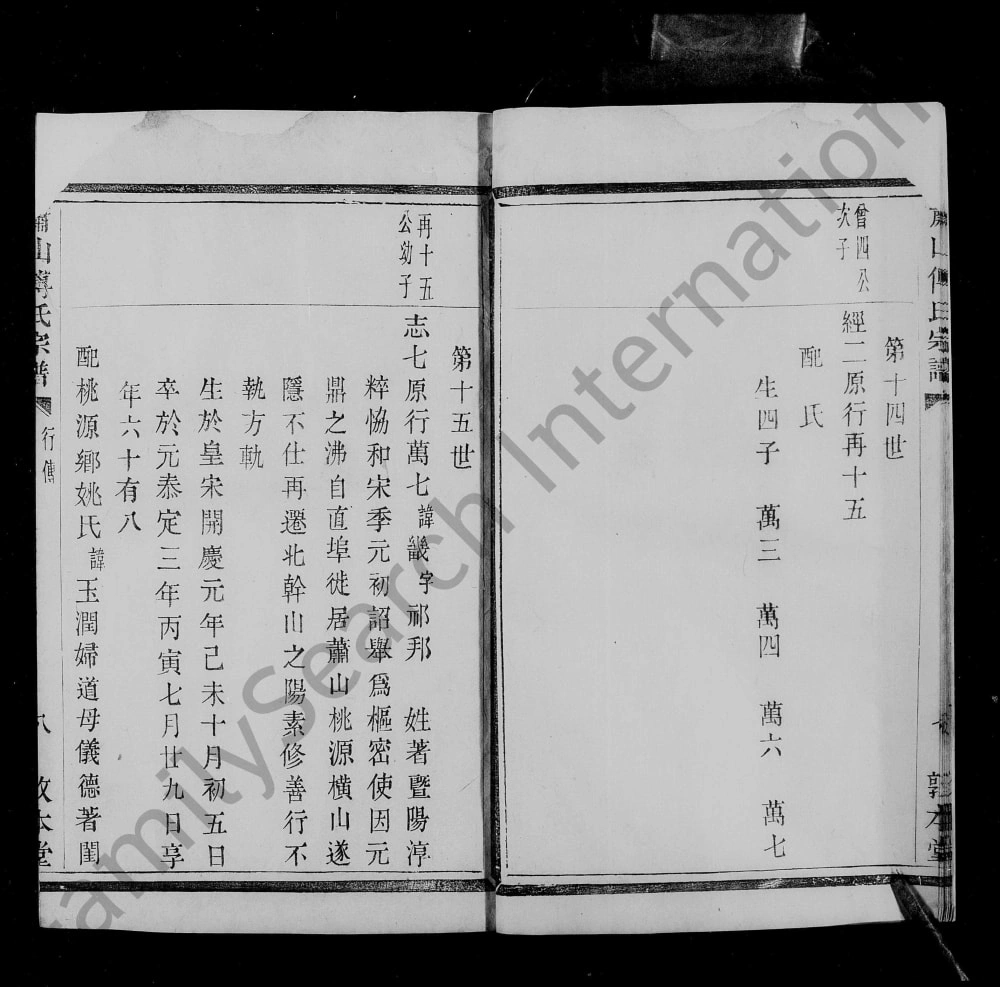 蕭山傅氏宗譜
敦本堂
第十四世
曾四公
次子
經二原行再十五
配 氏
生四子 萬三 萬四 萬六 萬七
第十五世
再十五
公幼子
志七原行萬七諱畿字祁邦 姓著暨陽淳
粹恊和宋季元初詔舉爲樞密使因元
鼎之沸自直埠徙居蕭山桃源橫山遂
隱不仕再遷北幹山之陽素修善行不
執方軌
生於皇宋開慶元年己未十月初五日
卒於元泰定三年丙寅七月廿九日享
年六十有八
配桃源鄉姚氏諱玉潤婦道母儀德著閨
蕭山傅氏宗譜
行傳
八
敦本堂
FamilySearch International